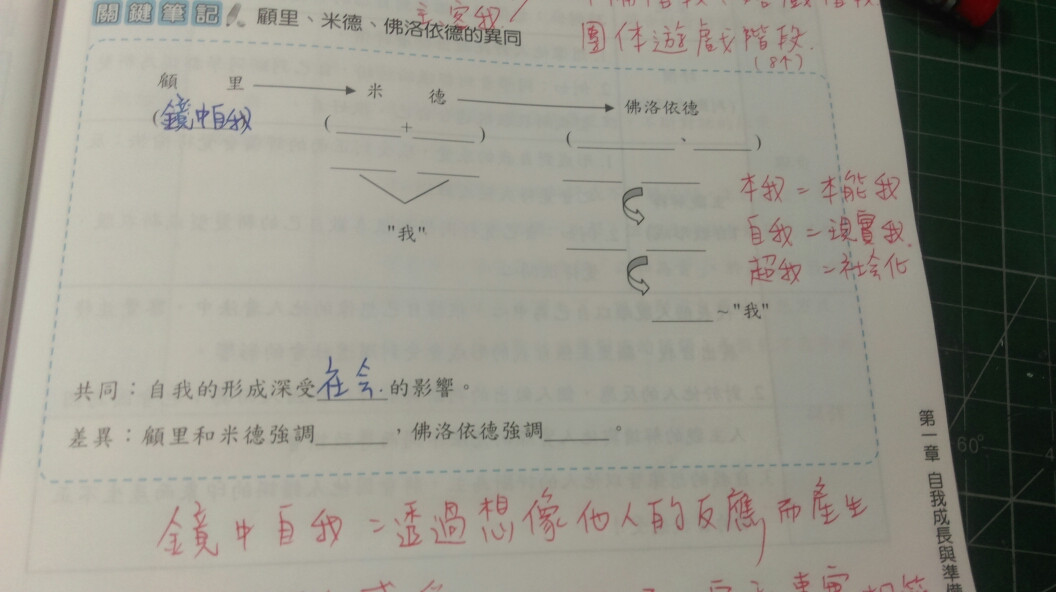 主、客我
關鍵筆記 顧里、米德、佛洛依德的異同
團体遊戲階段.
(8才)
顧 里 米 德 佛洛依德
(鏡中自我 (______+______) (______、______)
"我"
本我=本能我
自我=現實我.
超我=社会化
______~"我"
共同:自我的形成深受社会.的影響。
差異:顧里和米德強調______,佛洛依德強調______。
鏡中自我=透過想像他人的反應,而產生
第一章 自我成長與準備
60°